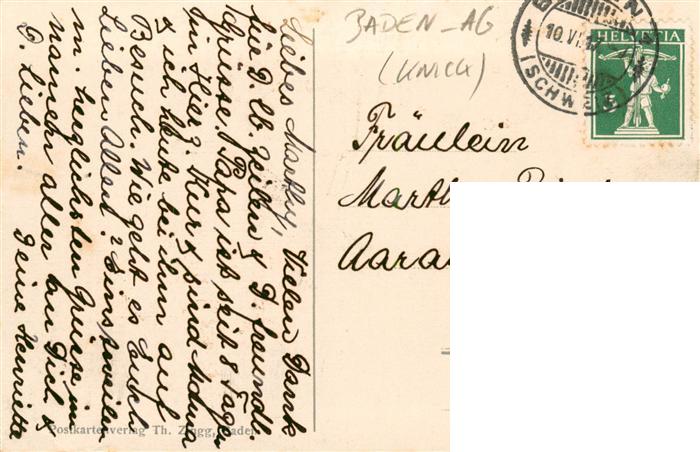 BADEN-AG
(KNICK)
HELVETIA
10.VI.1
(SCHWEIZ)
Fräulein
Marth
Aara
Liebes Marthy, Vielen Dank
für D. lb. Zeilen & D. freundl.
Grüsse. Papa ist seit 8 Tagen
im Hier z. Kur & sind Mama
& ich heute bei ihm auf
Besuch. Wie geht es Euch
Lieben Allen? Einstweilen
m. herzlichsten Grüsse im
namen aller an Dich &
D. Lieben. Deine Henriette
Postkartenverlag Th. Zingg, Baden